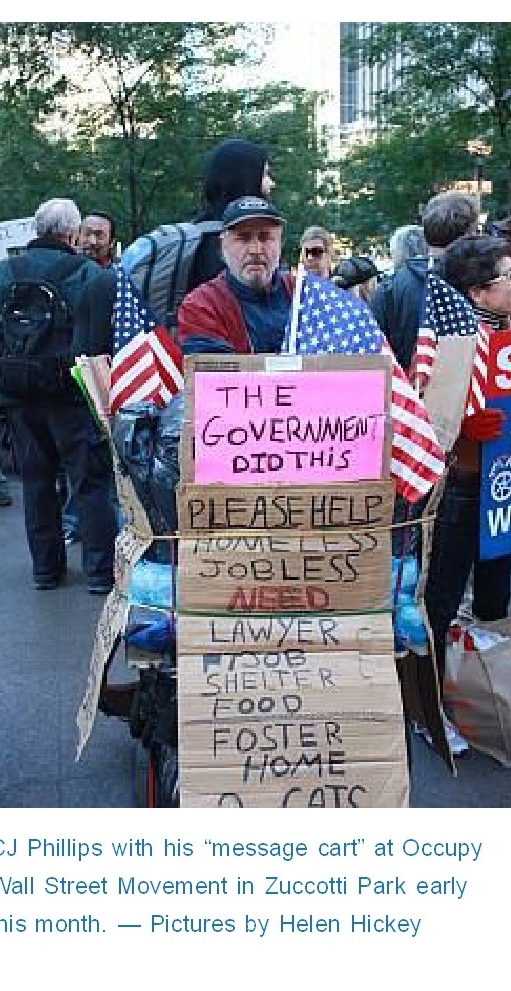 THE
GOVERNMENT
DID THIS
PLEASE HELP
HOMELESS
JOBLESS
NEED
LAWYER
JOB
SHELTER
FOOD
FOSTER
HOME
CATS
CJ Phillips with his “message cart” at Occupy
Wall Street Movement in Zuccotti Park early
this month. — Pictures by Helen Hickey